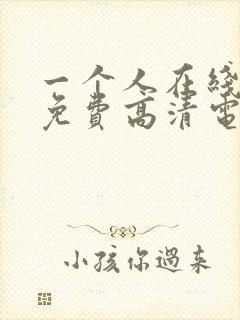 一个人在线
免费高清电
小孩你過来